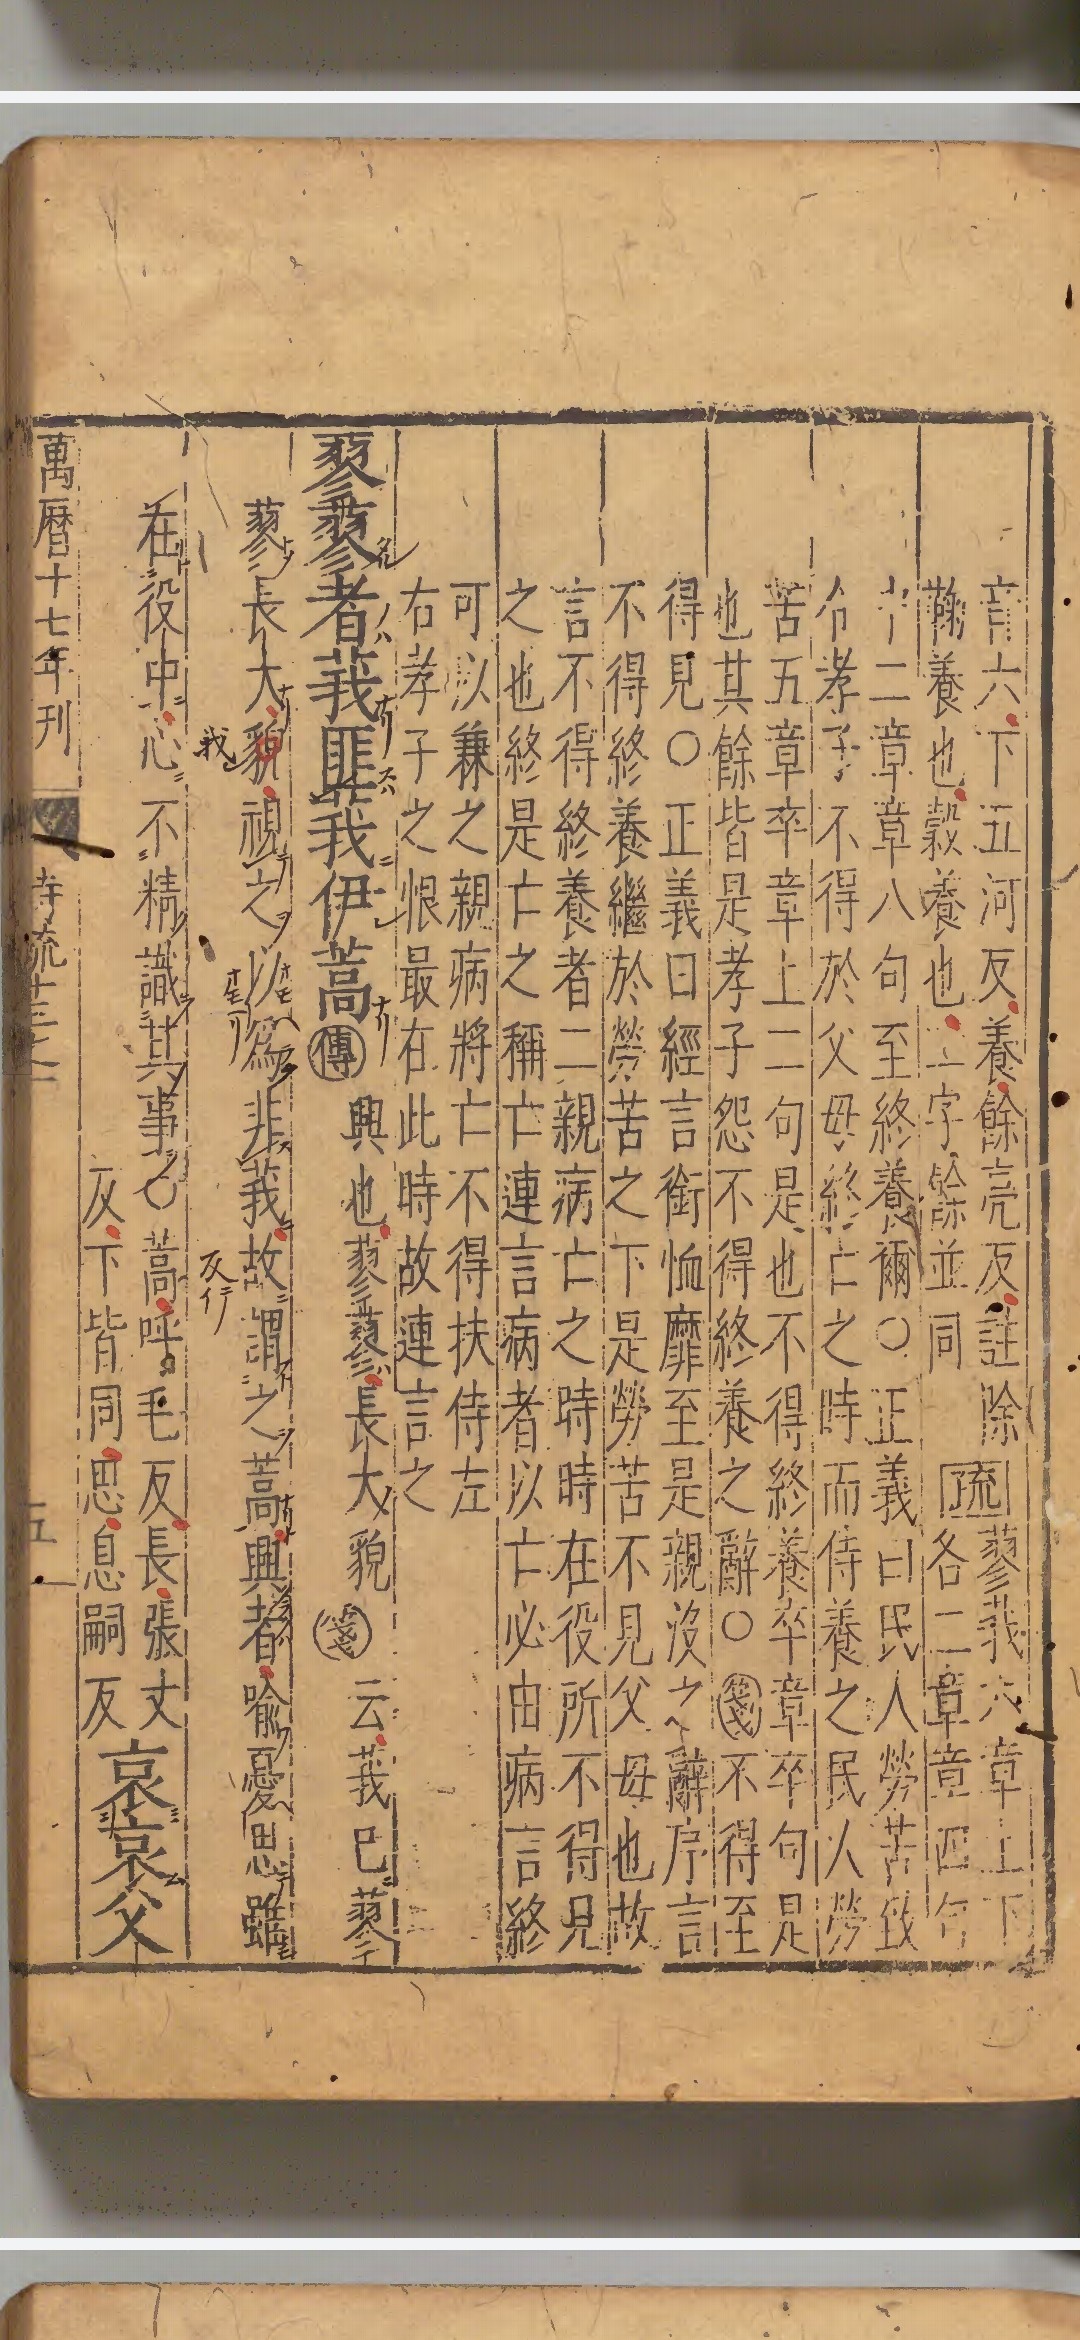 音六下五河反養餘亮反註除
鞠養也穀養也二字餘並同
疏蓼莪六章上下
各二章章四句
中二章章八句至終養爾〇正義曰民人勞苦致
令孝子不得於父母終亡之時而侍養之民人勞
苦五章卒章上二句是也不得終養卒章卒句是
也其餘皆是孝子怨不得終養之辭〇箋不得至
得見〇正義曰經言銜恤靡至是親沒之辭序言
不得終養繼於勞苦之下是勞苦不見父母也故
言不得終養者二親病亡之時時在役所不得見
之也終是亡之稱亡連言病者以亡必由病言終
可以兼之親病將亡不得扶侍左
右孝子之恨最在此時故連言之
蓼蓼者莪匪莪伊蒿傳興也蓼蓼長大貌箋云莪已蓼
蓼長大貌視之以為非莪故謂之蒿興者喻憂思雖
我
反行
在役中心不精識其事〇蒿呼毛反長張丈
反下皆同思息嗣反哀哀父
萬曆十七年刊
詩疏十三之一
五